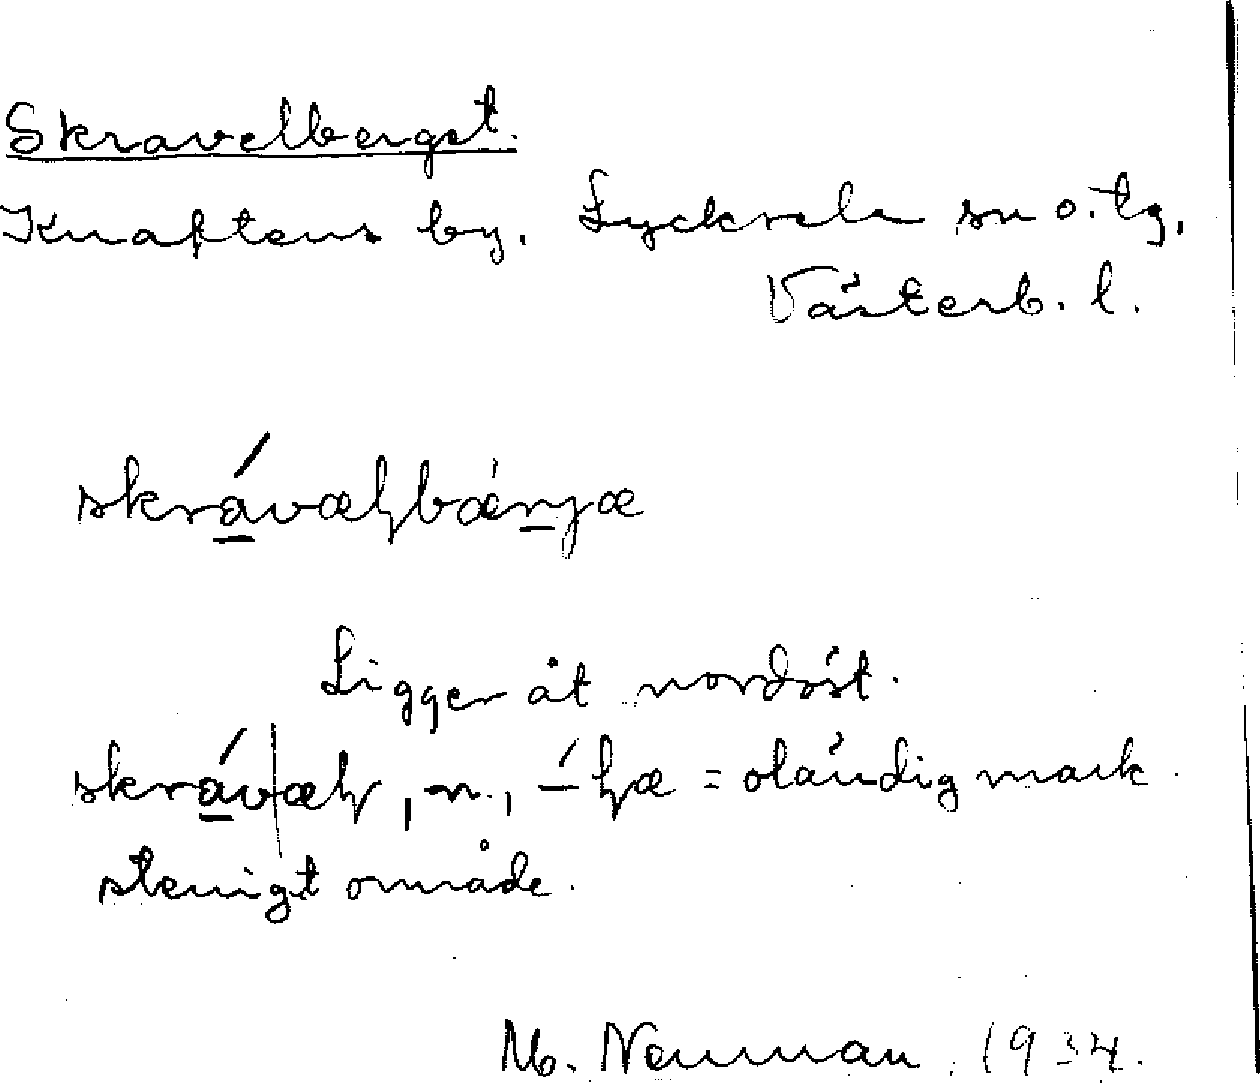 Skravelberget.
Knaftens by. Lycksele sn o. tg.
Västerb. l.
skrávæɽbærjæ
Ligger åt nordöst.
skráv|æɽ, n., -́ɽæ = oländig mark.
stenigt område.
M. Neuman. 1934.